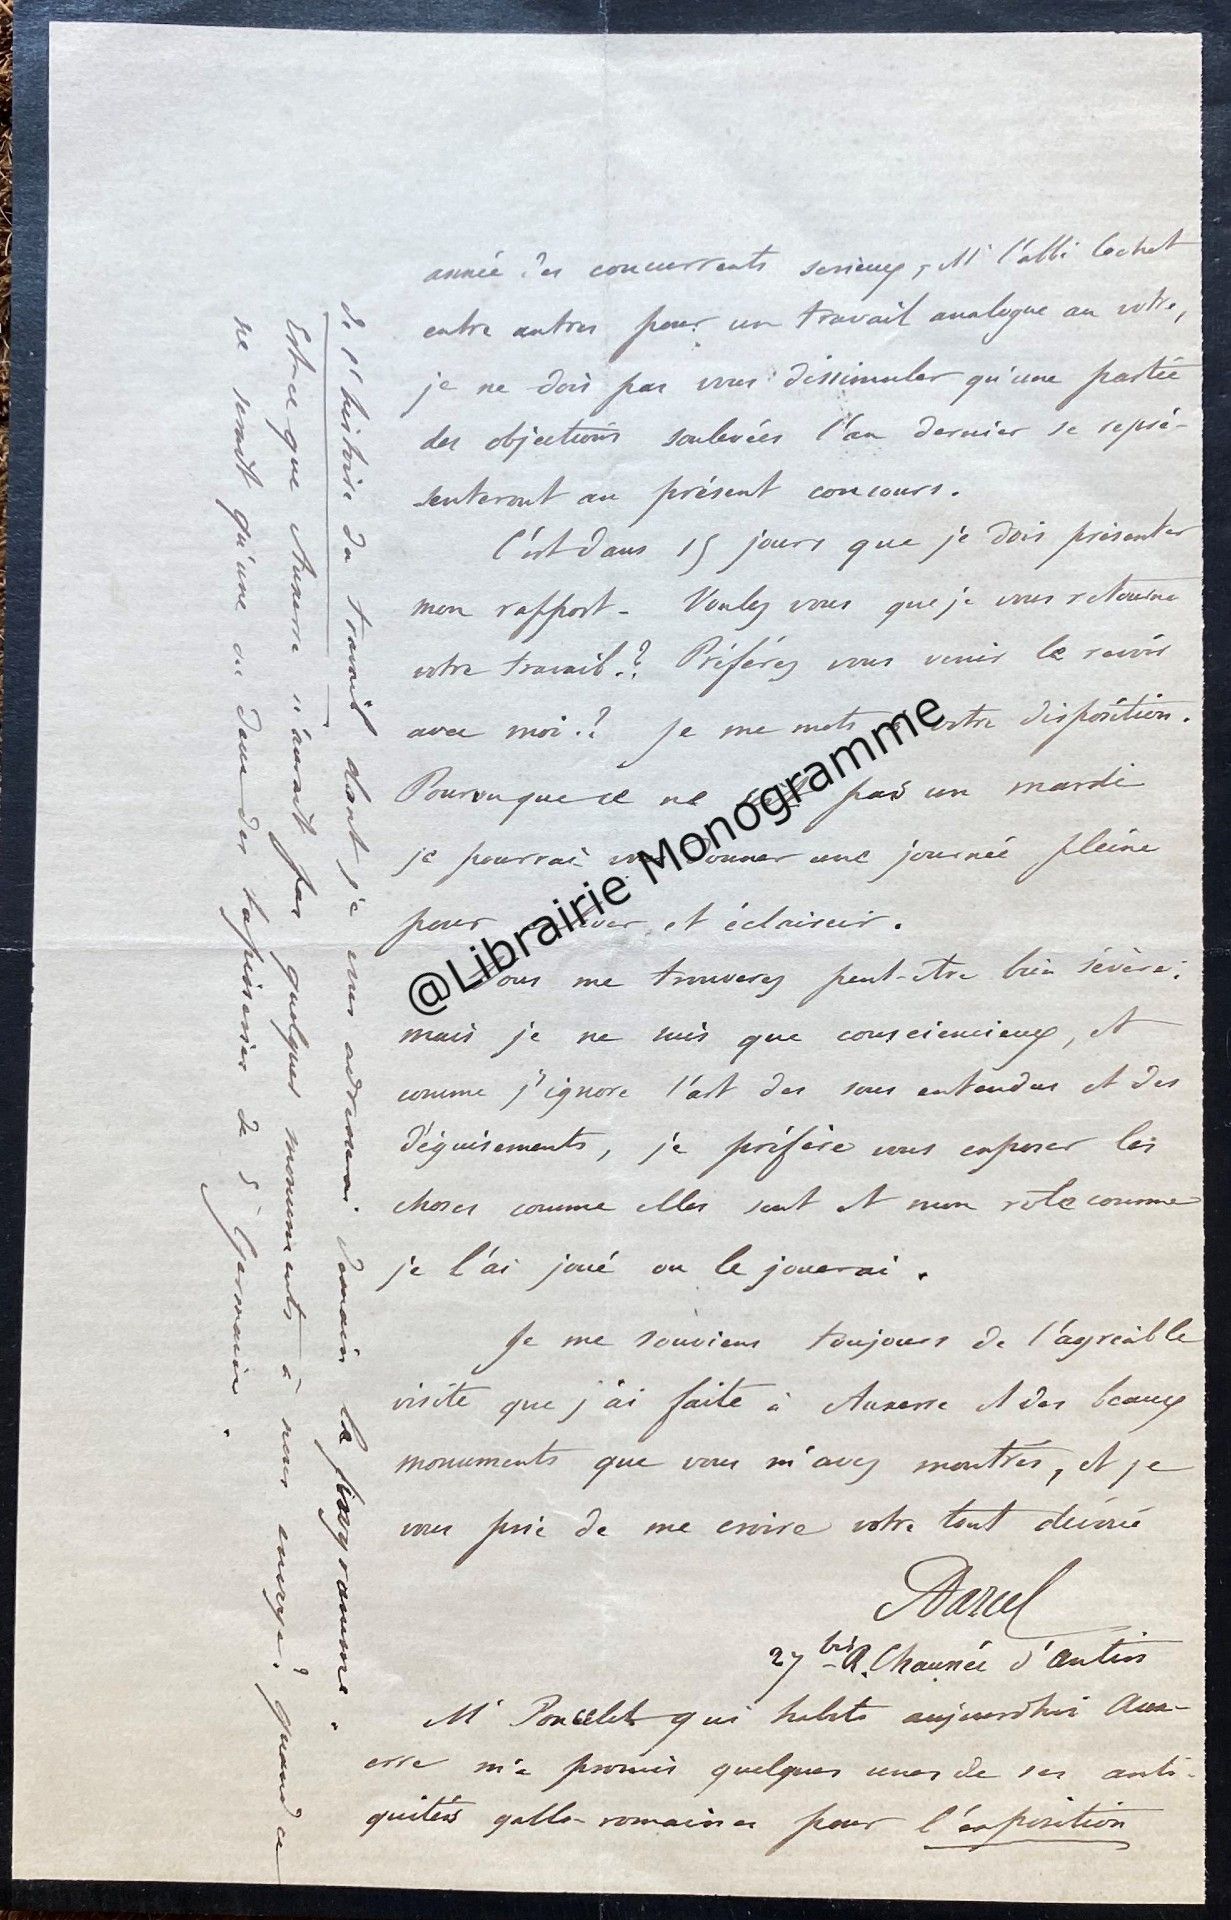 année des concurrents serieux, Mr l'abbé Cochet
entre autres pour un travail analogue au votre,
je ne dois pas vous dissimuler qu'une partie
des objections soulevées l'an dernier se repré-
senteront au présent concours.
C'est dans 15 jours que je dois présenter
mon rapport - Voulez vous que je vous retourne
votre travail.? Préférez vous venir le revoir
avec moi.? Je me mets votre disposition.
Pourvu que ce ne pas un mardi
je pourrai donner une journée pleine
pour et éclaircir.
Vous me trouverez peut-etre bien sévère:
mais je ne suis que consciencieux, et
comme j'ignore l'art des sous entendus et des
déguisements, je préfère vous exposer les
choses comme elles sont et mon role comme
je l'ai joué ou le jouerai.
Je me souviens toujours de l'agréable
visite que j'ai faite à Auxerre et des beaux
monuments que vous m'avez montrés, et je
vous prie de me croire votre tout dévoué
ADarcel
27 bis R. Chaussée d'Antin
Mr Poncelet qui habite aujourdhui Aux-
erre m'a promis quelques unes de ses anti-
quités gallo-romaines pour l'exposition
de l'histoire du travail dont je vous adresserai demain le programme.
Est-ce que Auxerre n'aurait pas quelques monuments à nous envoyer? quand ce
ne serait qu'une ou deux des tapisseries de St Germain.
@Librairie Monogramme